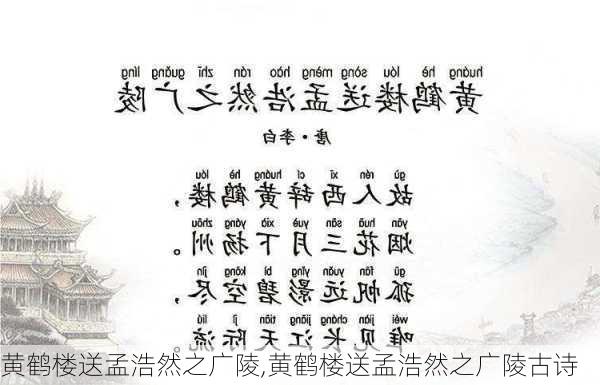 huáng hè lóu sòng mèng hào rán zhī guǎng líng
黄鹤楼送孟浩然之广陵
唐·李白
gù rén xī cí huáng hè lóu
故人西辞黄鹤楼，
yān huā sān yuè xià yáng zhōu
烟花三月下扬州。
gū fān yuǎn yǐng bì kōng jìn
孤帆远影碧空尽，
wéi jiàn cháng jiāng tiān jì liú
唯见长江天际流。
黄鹤楼送孟浩然之广陵,黄鹤楼送孟浩然之广陵古诗